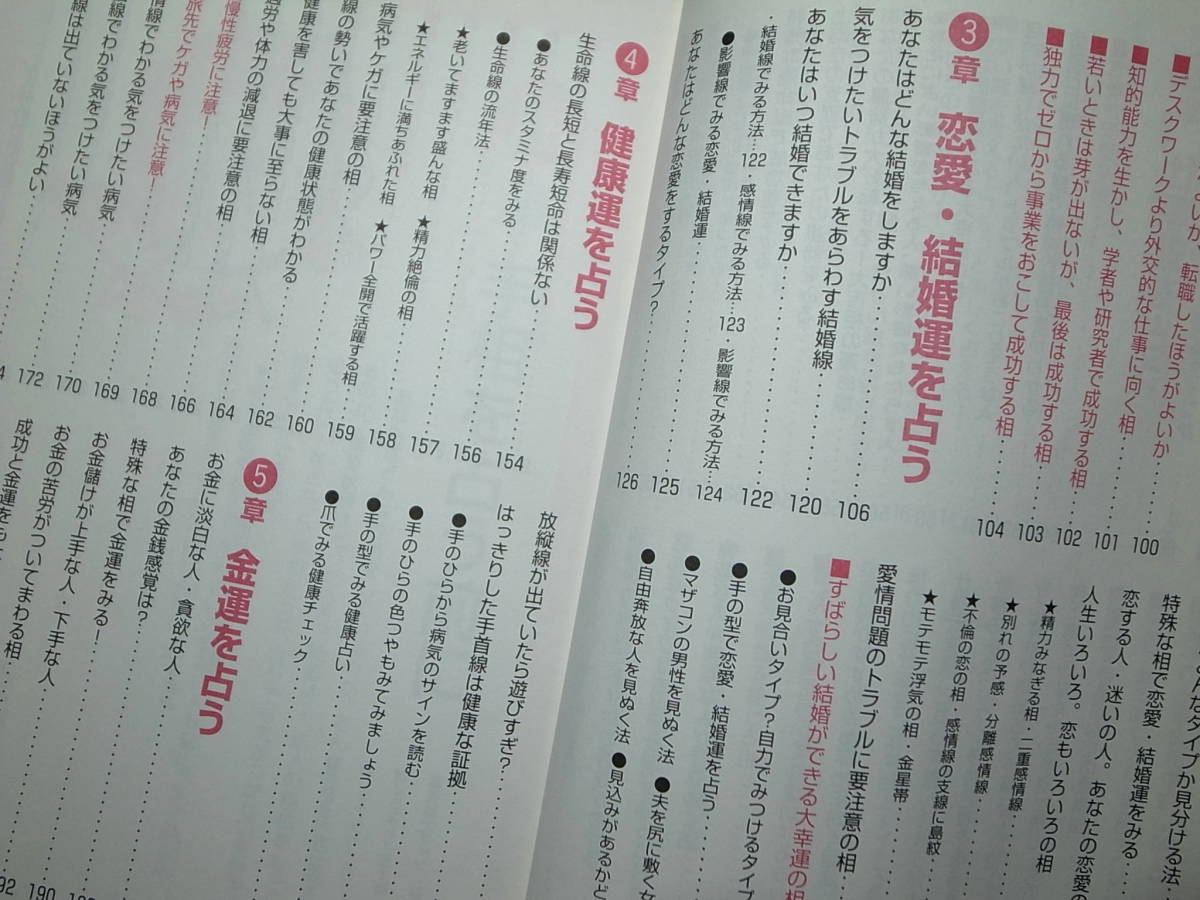 転職したほうがよいか
■デスクワークより外交的な仕事に向く相……100
■知的能力を生かし、学者や研究者で成功する相……101
■若いときは芽が出ないが、最後は成功する相……102
■独力でゼロから事業をおこして成功する相……103
104
3章 恋愛・結婚運を占う
あなたはどんな結婚をしますか……106
気をつけたいトラブルをあらわす結婚線……120
あなたはいつ結婚できますか……122
・結婚線でみる方法…122・感情線でみる方法…123 影響線でみる方法…124
●影響線でみる恋愛・結婚運……125
あなたはどんな恋愛をするタイプ?……126
タイプか見分ける法
特殊な相で恋愛・結婚運をみる
恋する人・迷いの人。あなたの恋愛の
人生いろいろ。恋もいろいろの相
★精力みなぎる相・二重感情線
★別れの予感・分離感情線
★不倫の恋の相・感情線の支線に島紋
★モテモテ浮気の相・金星帯
愛情問題のトラブルに要注意の相
■すばらしい結婚ができる大幸運の相
●お見合いタイプ?自力でみつけるタイプ
●手の型で恋愛・結婚運を占う
●マザコンの男性を見ぬく法 ●夫を尻に敷く女
●自由奔放な人を見ぬく法 ●見込みがあるかど
4章 健康運を占う
生命線の長短と長寿短命は関係ない……154
●あなたのスタミナ度をみる……156
●生命線の流年法……157
★老いてますます盛んな相 ★精力絶倫の相……158
★エネルギーに満ちあふれた相 ★パワー全開で活躍する相
病気やケガに要注意の相……159
線の勢いであなたの健康状態がわかる……160
健康を害しても大事に至らない相……162
労や体力の減退に要注意の相……164
慢性疲労に注意!……166
旅先でケガや病気に注意!……168
情線でわかる気をつけたい病気……169
線でわかる気をつけたい病気……170
線は出ていないほうがよい……172
放縦線が出ていたら遊びすぎ?
はっきりした手首線は健康な証拠
●手のひらから病気のサインを読む
●手のひらの色つやもみてみましょう
●手の型でみる健康占い
●爪でみる健康チェック
5章 金運を占う
お金に淡白な人・貪欲な人
あなたの金銭感覚は?
特殊な相で金運をみる!
お金儲けが上手な人・下手な人
お金の苦労がついてまわる相……190
成功と金運を